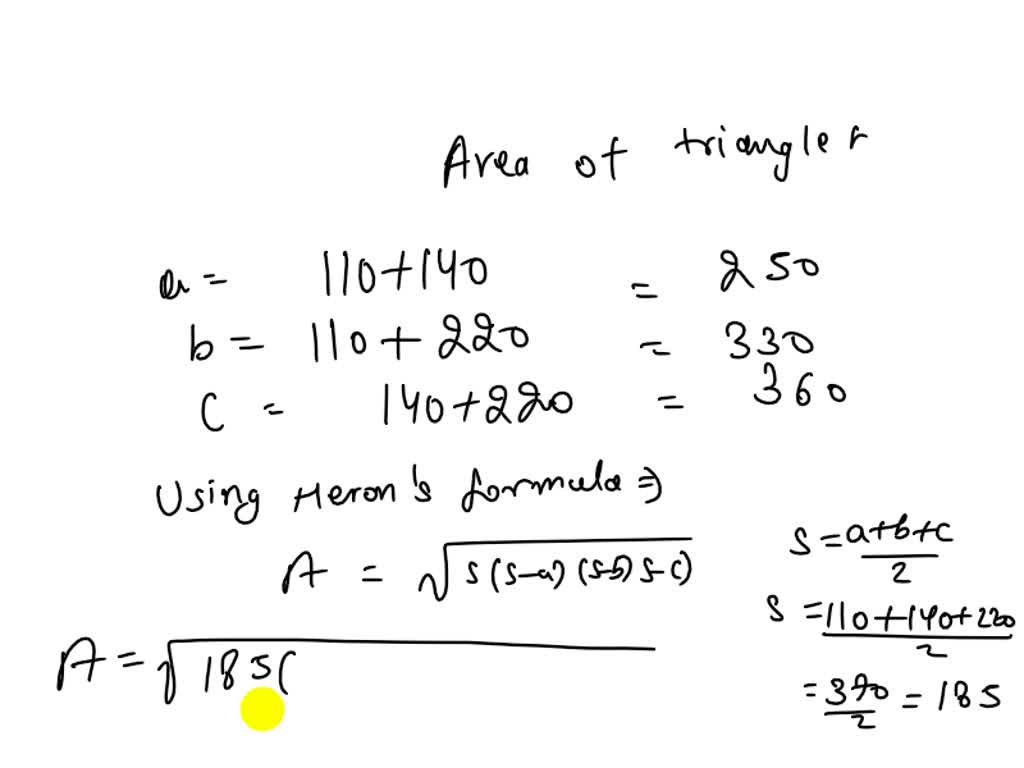 Area of triangle
a = 110+140 = 250
b = 110+220 = 330
c = 140+220 = 360
Using Heron's formula ⇒
A = √s(s-a)(s-b)s-c)
s = a+b+c/2
s = 110+140+220/2
= 370/2 = 185
A = √185(